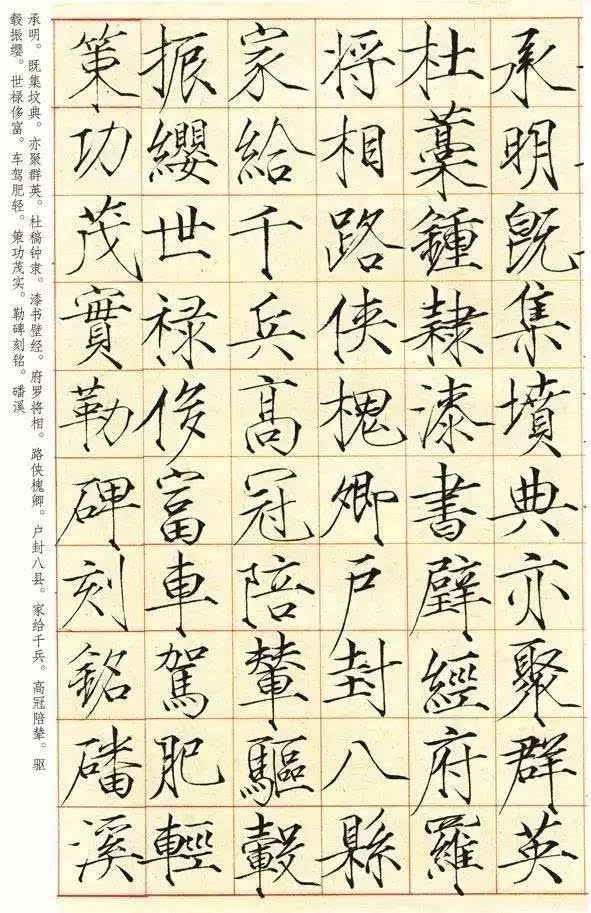 承明既集墳典亦聚群英
杜藁鍾隸漆書壁經府羅
將相路俠槐卿戶封八縣
家給千兵高冠陪輦驅轂
振纓世祿侈富車駕肥輕
策功茂實勒碑刻銘磻溪
承明。既集坟典。亦聚群英。杜稿钟隶。漆书壁经。府罗将相。路侠槐卿。户封八县。家给千兵。高冠陪辇。驱
毂振缨。世禄侈富。车驾肥轻。策功茂实。勒碑刻铭。磻溪